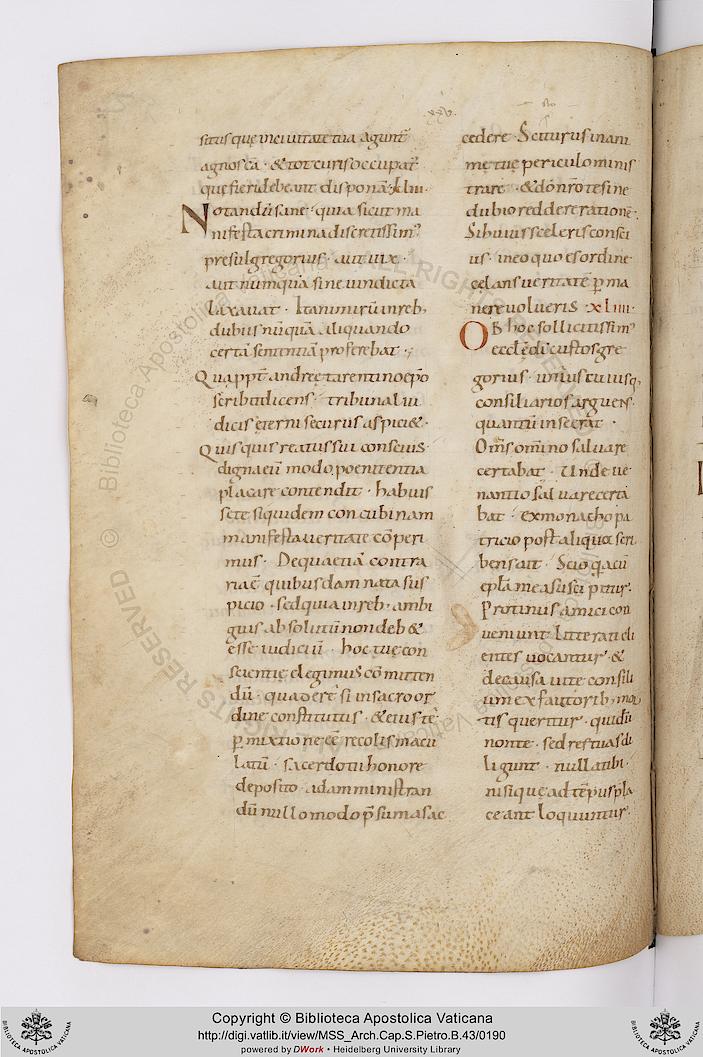 situs que in civitate tua agunt᷑
agnoscā · & tot curis occupat᷑
que fieri debeant disponā · xliii ·
Notandū sane · quia sicut ma
nifesta crimina discretissim᷒
presul gregorius · aut vix ·
aut numquā sine vindicta
laxavat · Ita nimirū in reb;
dubiis nūquā aliquando
certā sententiā proferebat ·
Qua ꝓpt᷑ andreę tarentino epō
scribit dicens · tribunal iu
dicis ęterni securus aspici& ·
Quisquis reatus sui conscius ·
digna eū modo poenitentia
placare contendit · habuis
se te siquidem concubinam
manifesta veritate cōperi
mus · De qua etiā contra
riaē quibusdam nata sus
picio · sed quia in reb; ambi
guis absolutū non deb&
esse iudiciū · hoc tuę con
scientię elegimus cōmitten
dū · qua de re si in sacro or
dine constitutus · & eius te
p̱mixtione eē recolis macu
latū · sacerdotii honore
deposito · ad amministran
dū nullo modo p̄sumas ac
cedere · Sciturus in ani
mę tuę periculo minis
trare · & dō nr̄o te sine
dubio reddere rationē ·
Si huius sceleris consci
us · in eo quo es ordine
celans veritatē p̱ma
nere volueris · xliiii ·
Ob hoc sollicitissim᷒
ecclę dī custos gre
gorius · unius cuiusq;
consiliarios arguens ·
quantū in se erat ·
Om̄s om̄ino salvare
certabat · Unde ve
nantio salvare certa
bat · ex monacho pa
tricio post aliqua scri
bens ait · Scio q̄a cū
epl̄a mea suscipitur ·
Protinus amici con
veniunt litterati cli
entes vocantur · &
de causa vite consili
um ex fautorib; mor
tis queritur · qui dū
non te · sed res tuas di
ligunt · nulla tibi ·
nisi que ad tēpus pla
ceant loquuntur ·
Copyright © Biblioteca Apostolica Vaticana
http://digi.vatlib.it/view/MSS_Arch.Cap.S.Pietro.B.43/0190
powered by DWork • Heidelberg University Library